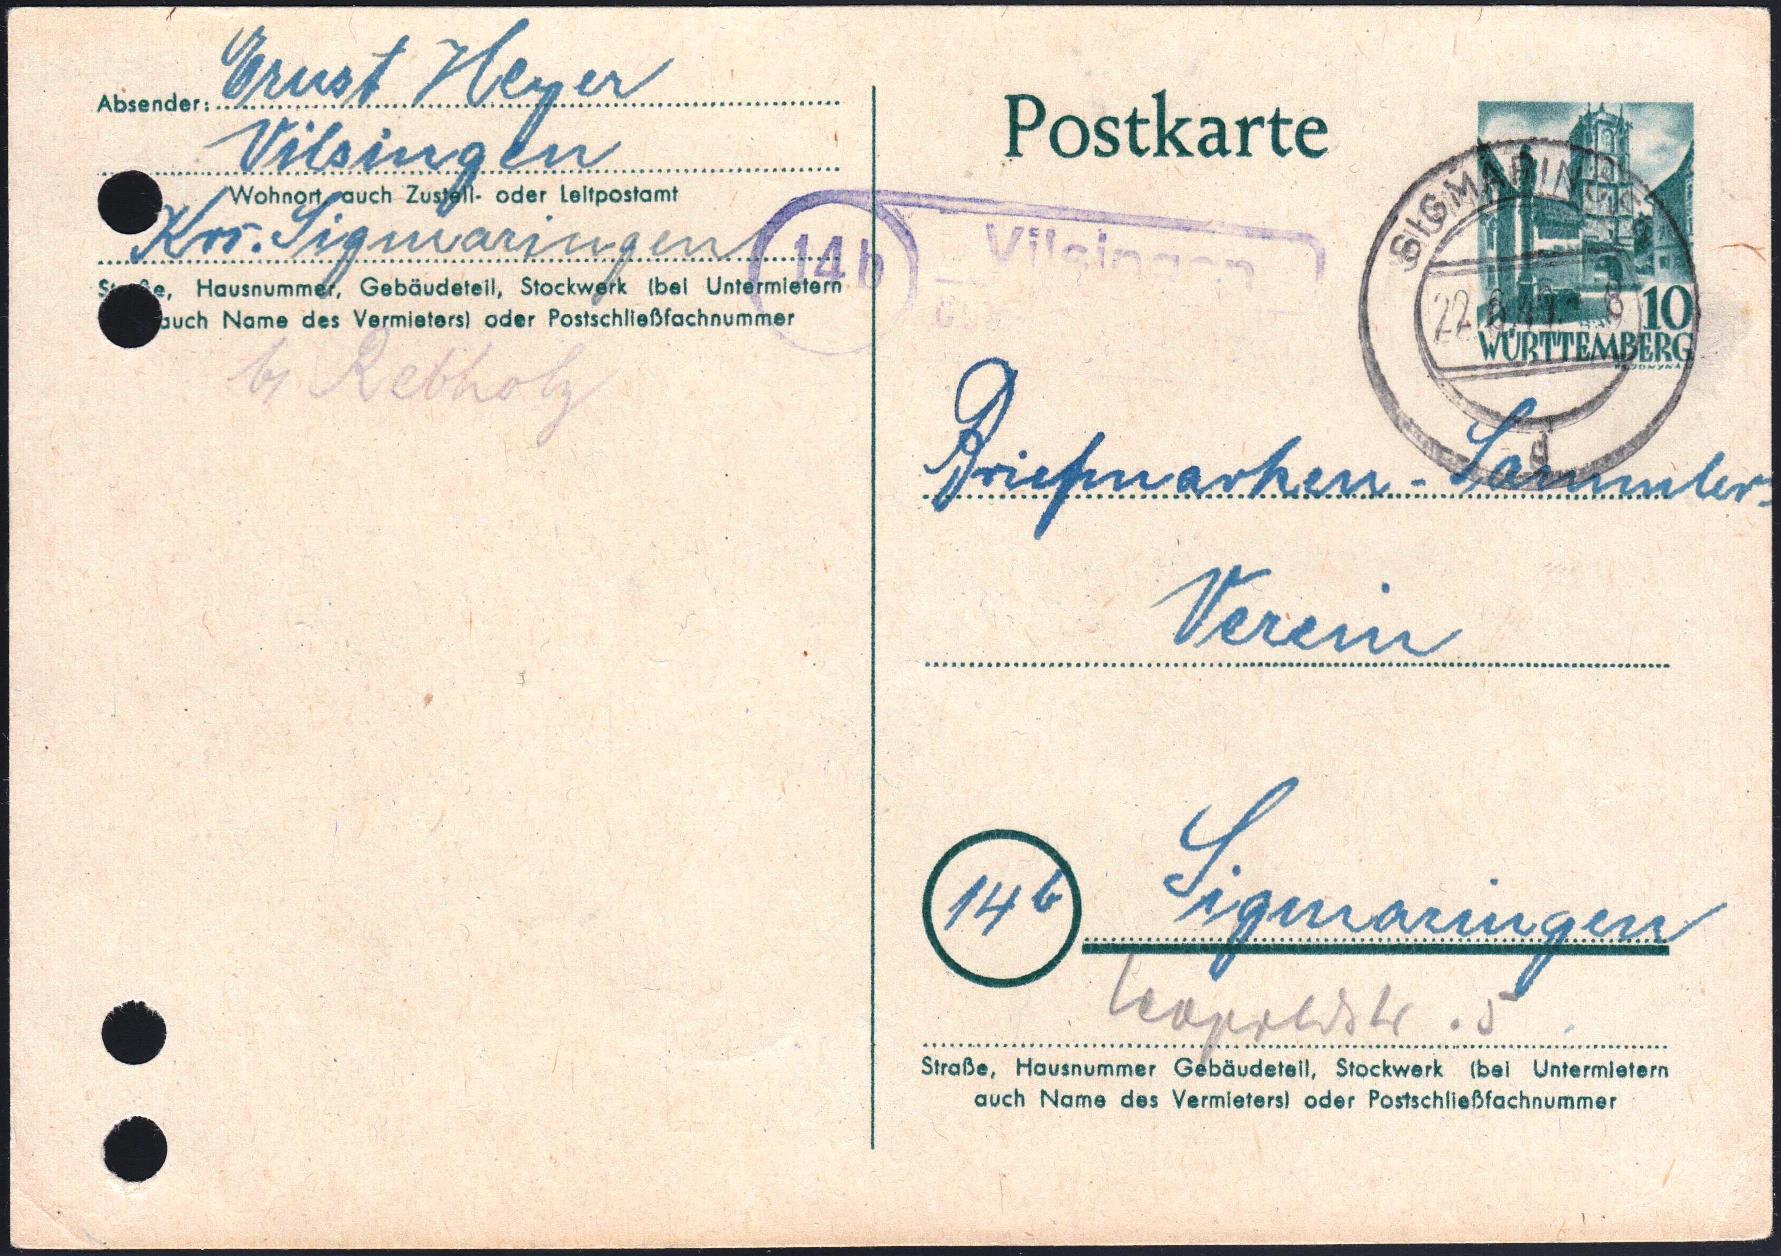 Absender: Ernst Heyer
Vilsingen
Wohnort, auch Zustell- oder Leitpostamt
Krs. Sigmaringen
Straße, Hausnummer, Gebäudeteil, Stockwerk (bei Untermietern
auch Name des Vermieters) oder Postschließfachnummer
b/ Rebholz
14b
Vilsingen
Postkarte
SIGMARINGEN
22.6.49. 8
d
10
WÜRTTEMBERG
Briefmarken-Sammler-
Verein
14b Sigmaringen
Leopoldstr. 5
Straße, Hausnummer Gebäudeteil, Stockwerk (bei Untermietern
auch Name des Vermieters) oder Postschließfachnummer